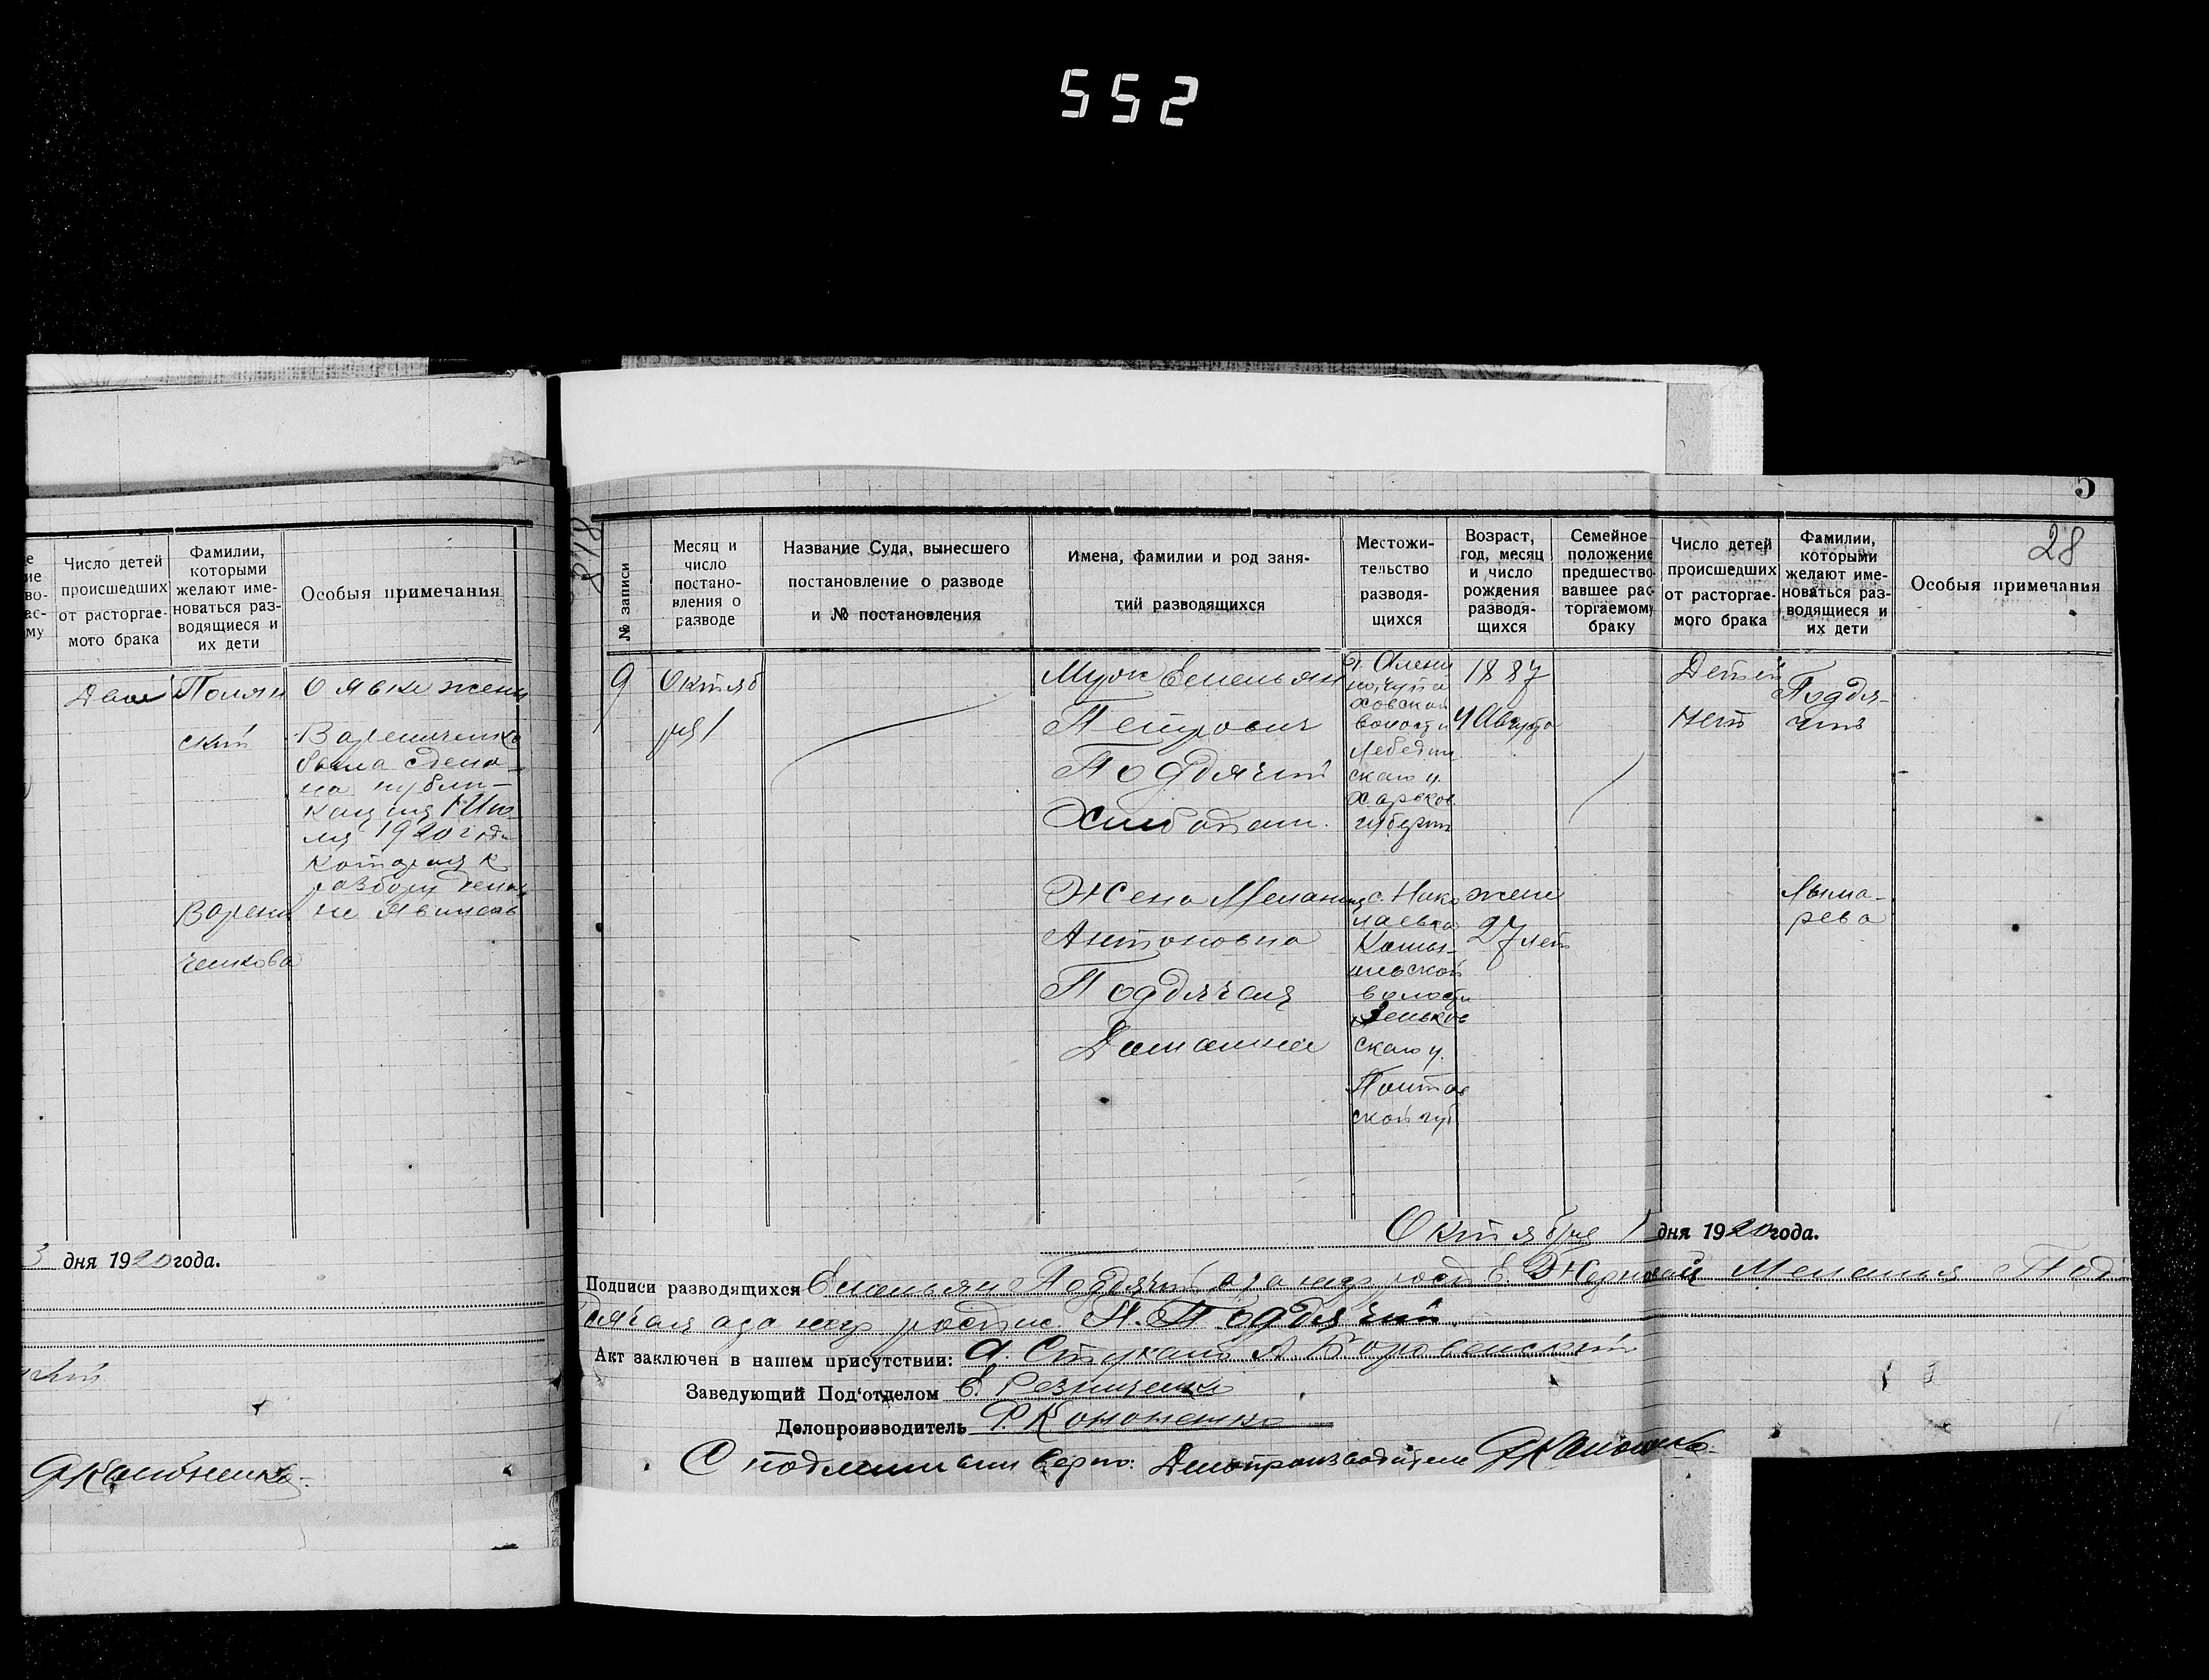 552
Число детей происшедших от расторгае-мого брака
Фамилии, которыми желают име-новаться раз-водящиеся и их дети
Особыя примечания
Двое
Полян
ский
О явке жены
Варениченко
была сдела-
на публи-
кация 1 Ию
ля 1920 года
которая к
разбору дела
не явилась
Варени
ченкова
3 дня 1920 года.
ский
818
5
28
№ записи
Месяц и число постано-вления о разводе
Название Суда, вынесшего постановление о разводе и № постановления
Имена, фамилии и род заня-тий разводящихся
Местожи-тельство разводя-щихся
Возраст, год, месяц и число рождения разводя-щихся
Семейное положение предшество-вавшее рас-торгаемому браку
Число детей происшедших от расторгае-мого брака
Фамилии, которыми желают име-новаться раз-водящиеся и их дети
Особыя примечания
9
Октяб
ря 1
Муж Емельян
Петрович
Поддячий
Хлебопаш.
волости
Лебедин
скаго у.
Харьков.
губерни
1887
4 Августа
Детей
нет
Поддя-
чий
Жена Мелания
Антоновна
Поддячая
Домашнее
с. Нико
лаевка
волости
Зеньков
скаго у.
Полтав
ской губ
жене
27 лет
Лыма-
рева
Октября 1 дня 1920 года.
Подписи разводящихся Емельян Поддячий а за негр. росп. Мелания Под
дячая а за негр роспис. П. Поддячий.
Акт заключен в нашем присутствии: А. Боровенский
Заведующий Под'отделом Резниченко
Делопроизводитель Р. Кононенко
С подлинным верно: Делопроизводитель